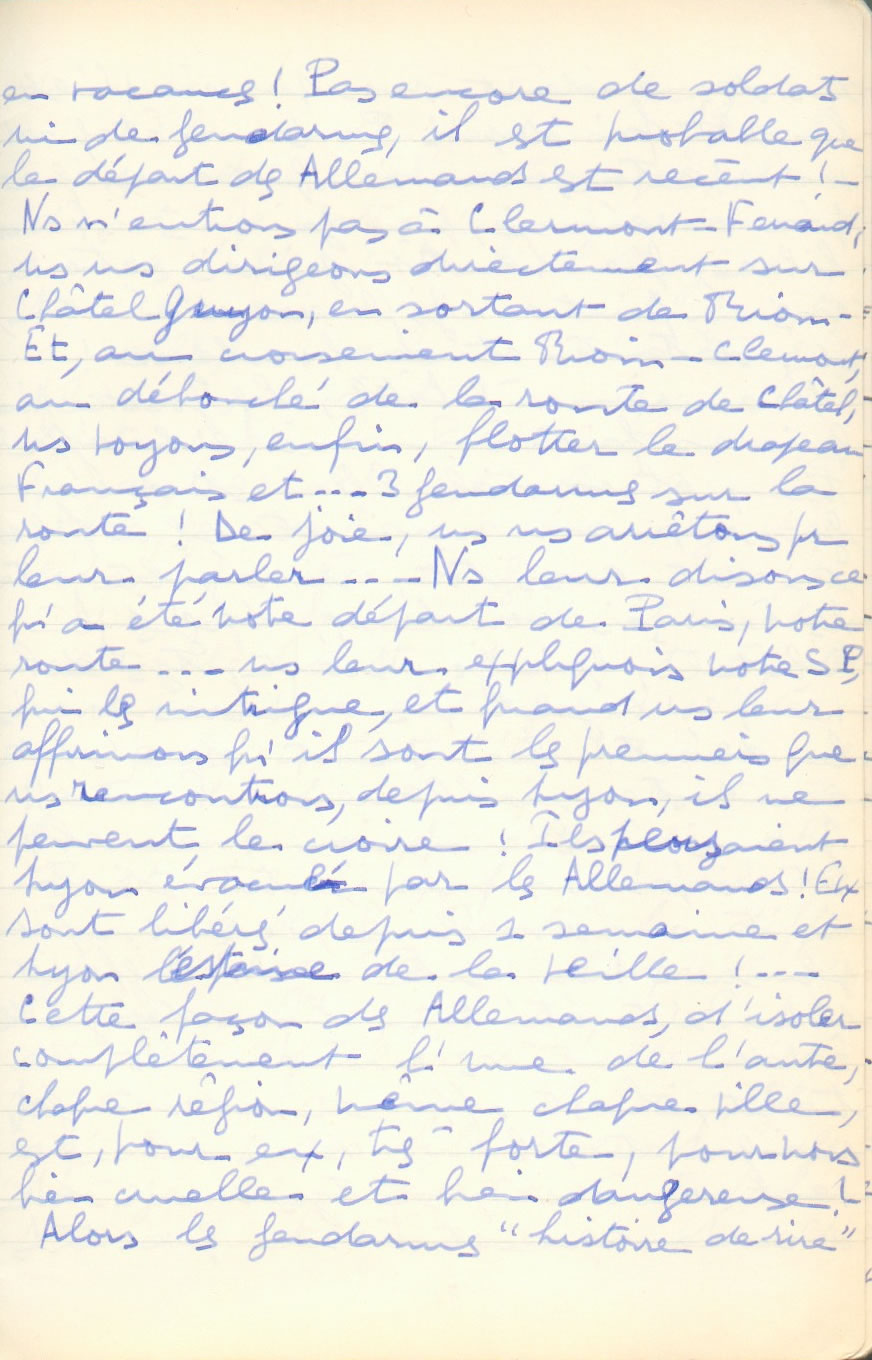 en vacances ! Pas encore de soldats
ni de gendarmes, il est probable que
le départ des Allemands est récent ! -
Ns n'entrons pas à Clermont-Ferrand,
ns ns dirigeons directement sur
Châtel Guyon, en sortant de Riom -
Et, au croisement Riom - Clermont,
au débouché de la route de Châtel,
ns voyons, enfin, flotter le drapeau
Français et --- 3 gendarmes sur la
route ! De joie, ns ns arrêtons pr
leur parler --- Ns leur disons ce
qu'a été notre départ de Paris, notre
route --- ns leur expliquons notre S P,
qui les intrigue, et quand ns leur
affirmons qu'il sont les premiers que
ns rencontrons, depuis Lyon, ils ne
peuvent le croire ! Ils pensaient
Lyon évacué par les Allemands ! Eux
sont libérés depuis 1 semaine et
Lyon de la veille ! ---
Cette façon des Allemands, d'isoler
complêtement l'une de l'autre,
chaque région, même chaque ville,
est, pour eux, très forte, pour nous
bien cruelle et bien dangereuse !
Alors les gendarmes "histoire de rire"